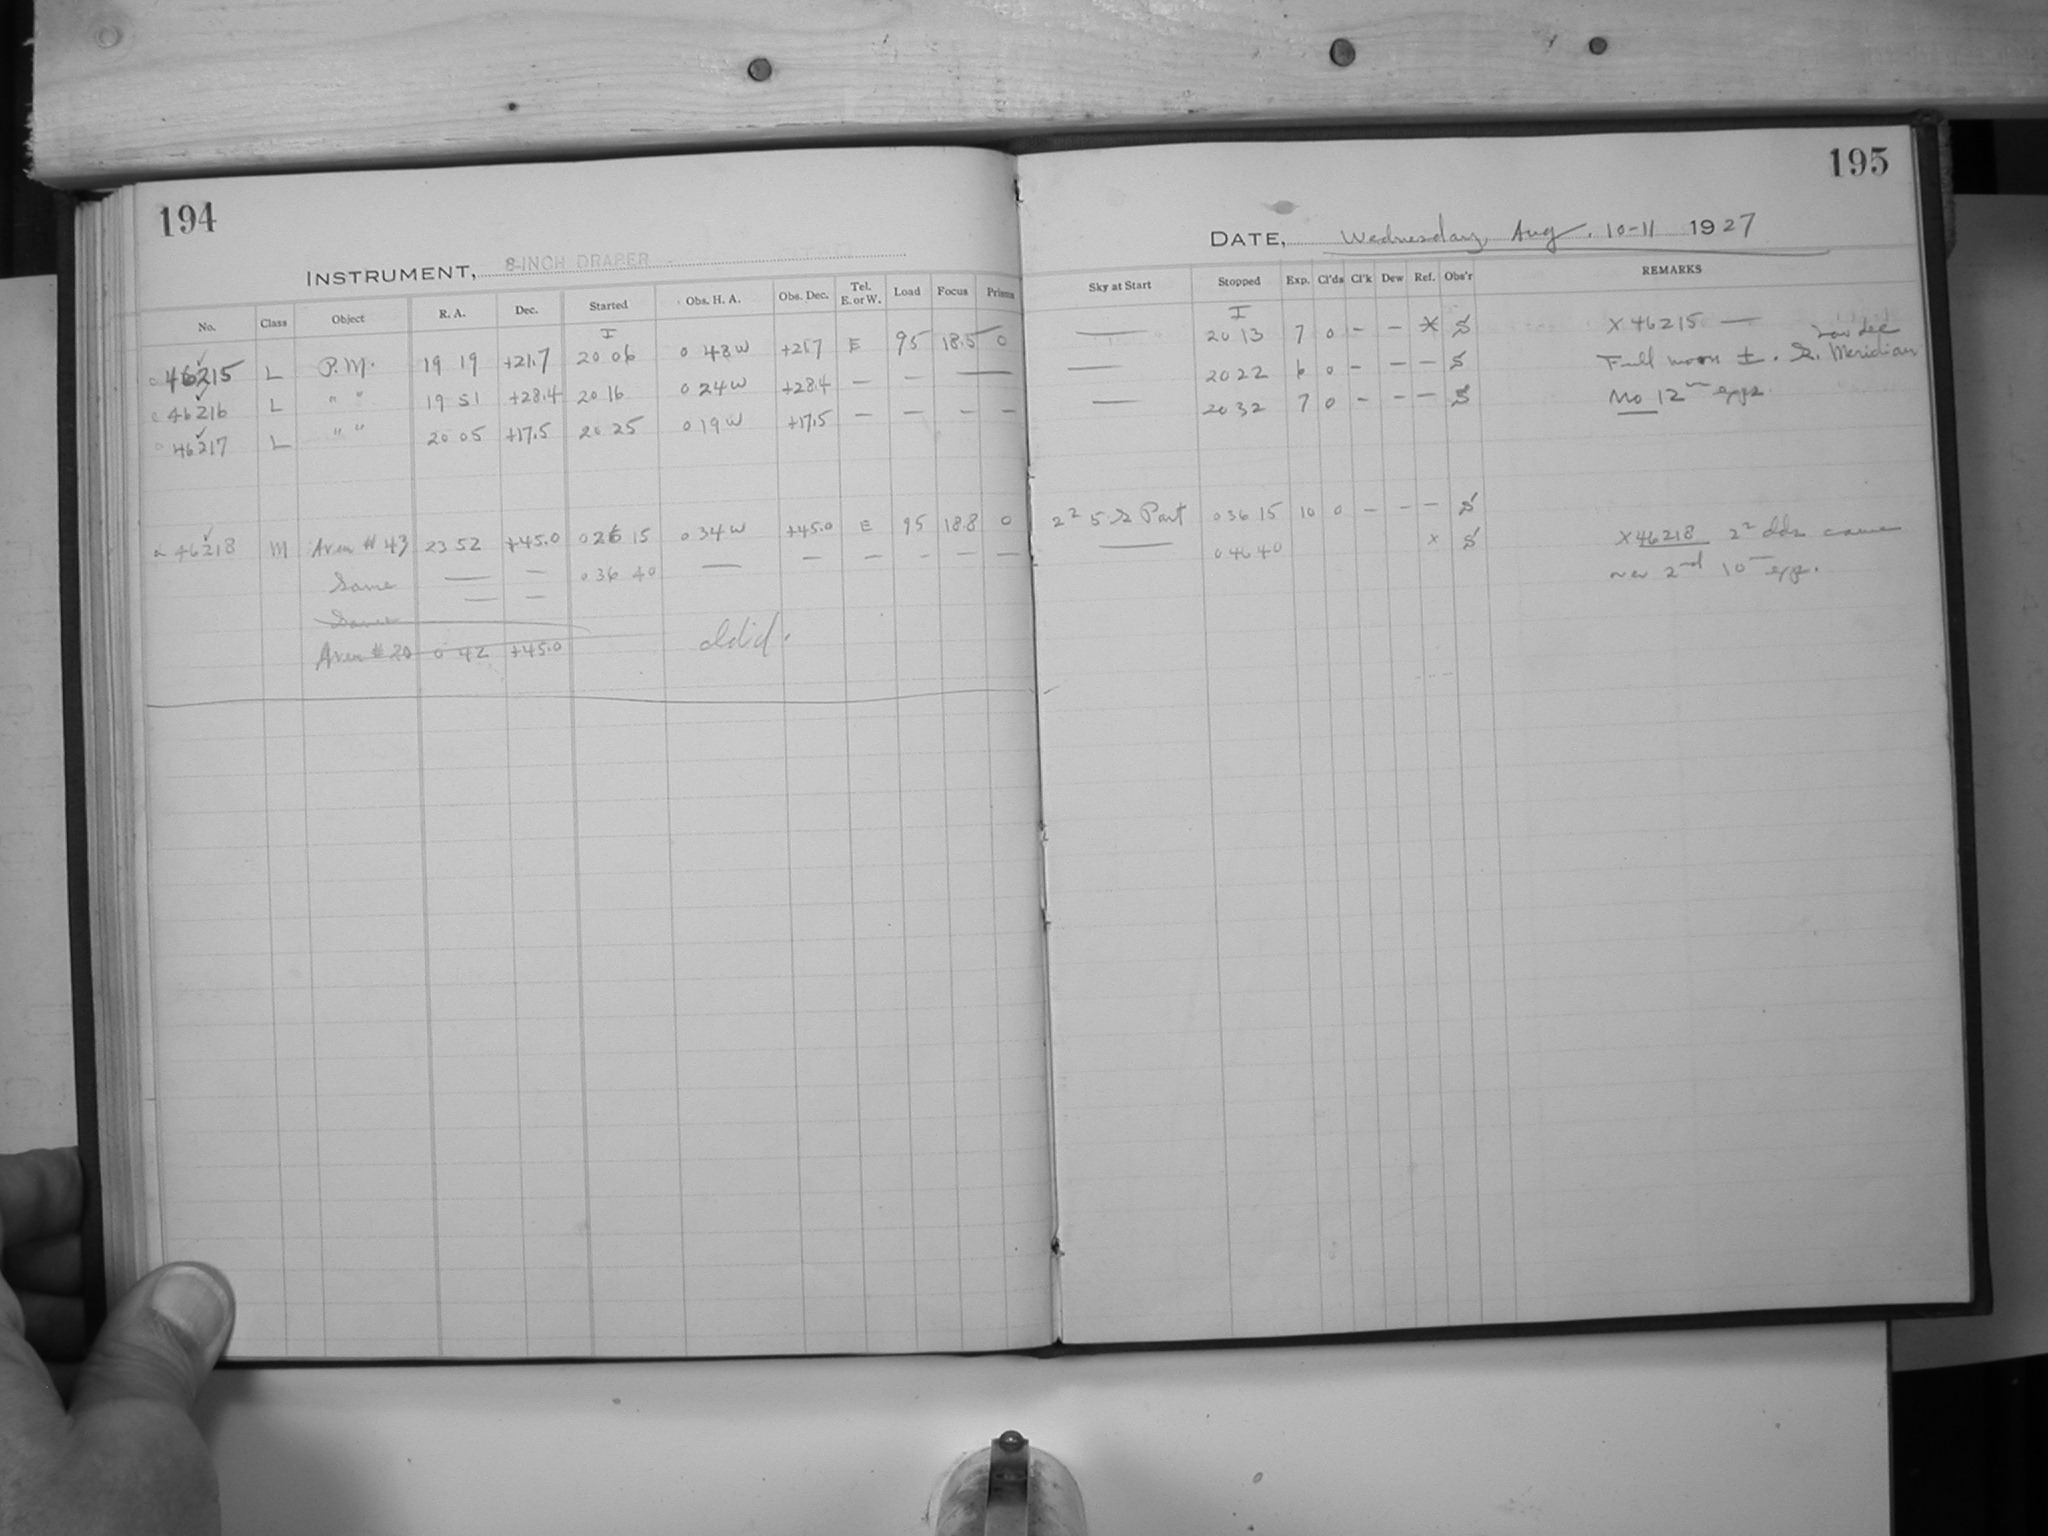 194
INSTRUMENT, 8-INCH DRAPER
No. Class Object R. A. Dec. Started Obs. H. A. Obs. Dec. Tel. E. or W. Load Focus Prisms
I
46215 L P.M. 19 19 +21.7 20 06 0 48 W +21.7 E 95 18.5 0
46216 L " " 19 51 +28.4 20 16 0 24 W +28.4 — — —
46217 L " " 20 05 +17.5 20 25 0 19 W +17.5 — — — —
46218 M # 43 23 52 +45.0 0 26 15 0 34 W +45.0 E 95 18.8 0
Same — — 0 36 40 — — — — — —
— —
Same
# 20 0 42 +45.0
195
DATE, Wednesday, Aug. 10-11 1927
Sky at Start Stopped Exp. Cl'ds Cl'k Dew Ref. Obs'r REMARKS
I
— 20 13 7 0 - - X S X 46215 —
— 20 22 6 0 - — — S Full moon ±. Meridian
— 20 32 7 0 - - — S No 12m exps.
0 36 15 10 0 - - — S
— 0 46 40 x S X 46218 came
over 2nd 10m exp.